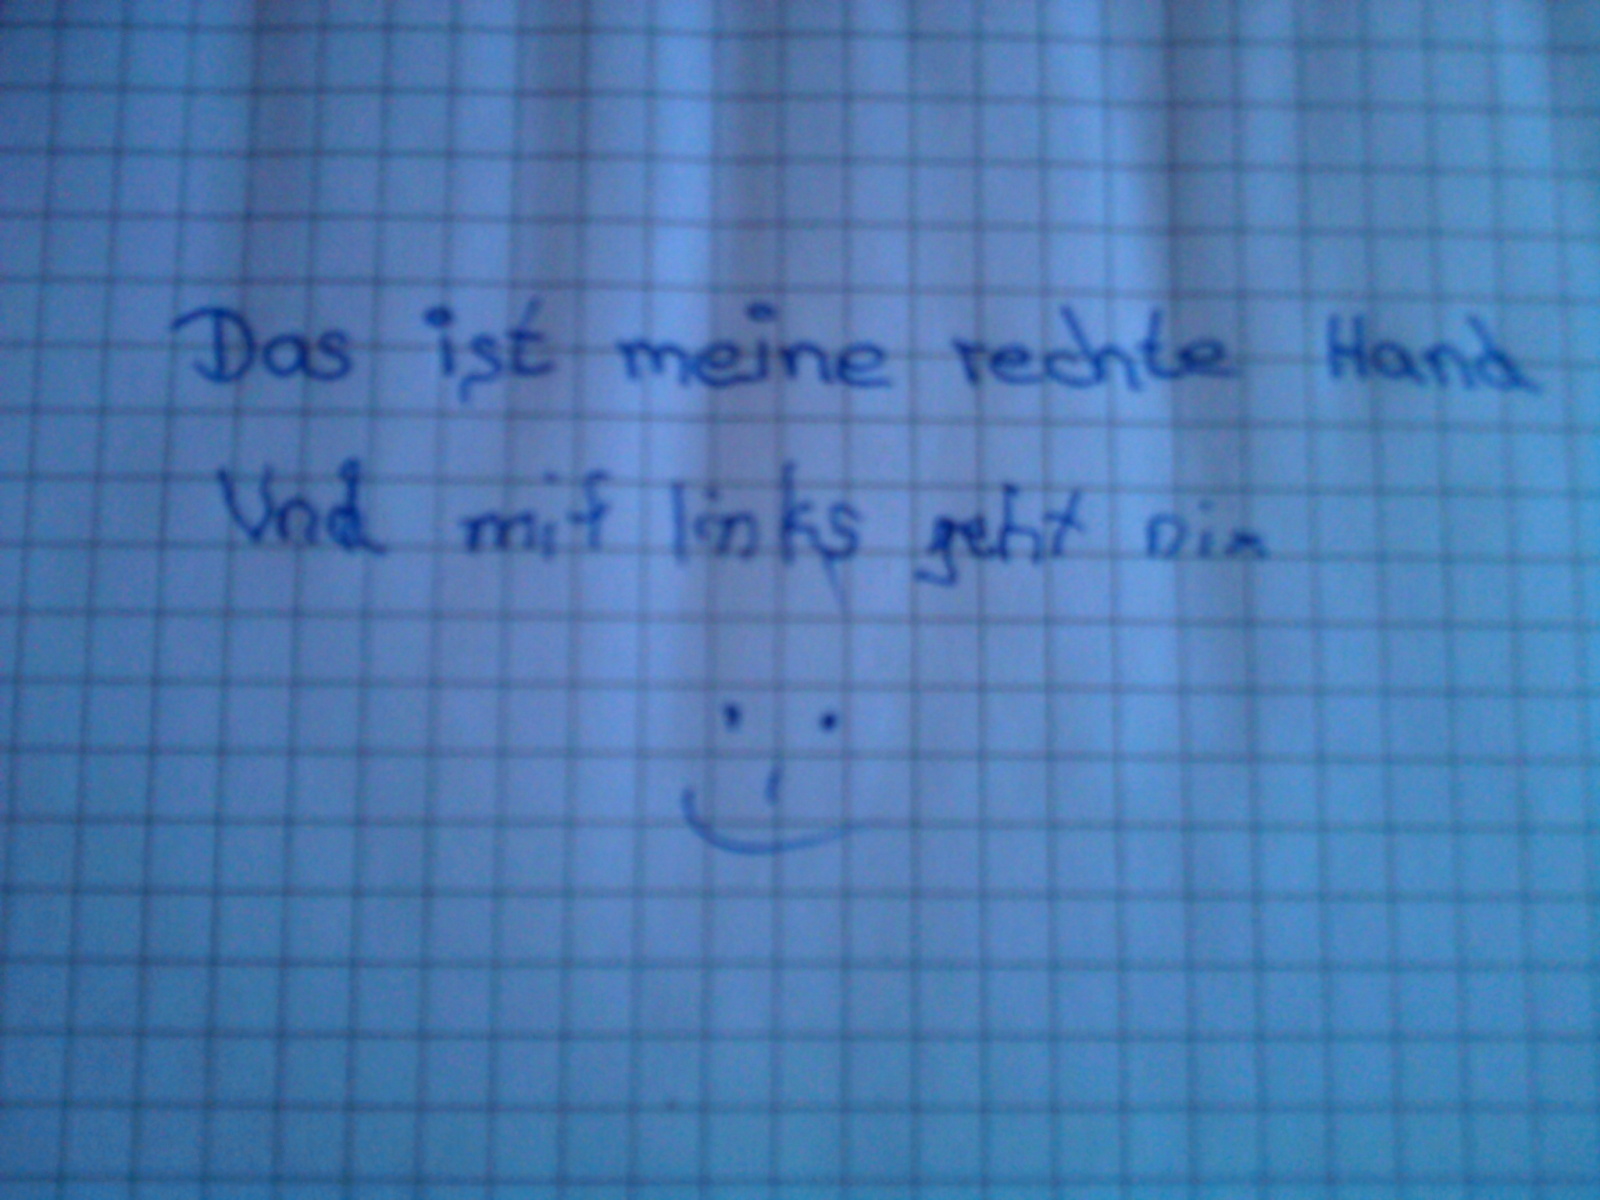 Das ist meine rechte Hand
Und mit links geht